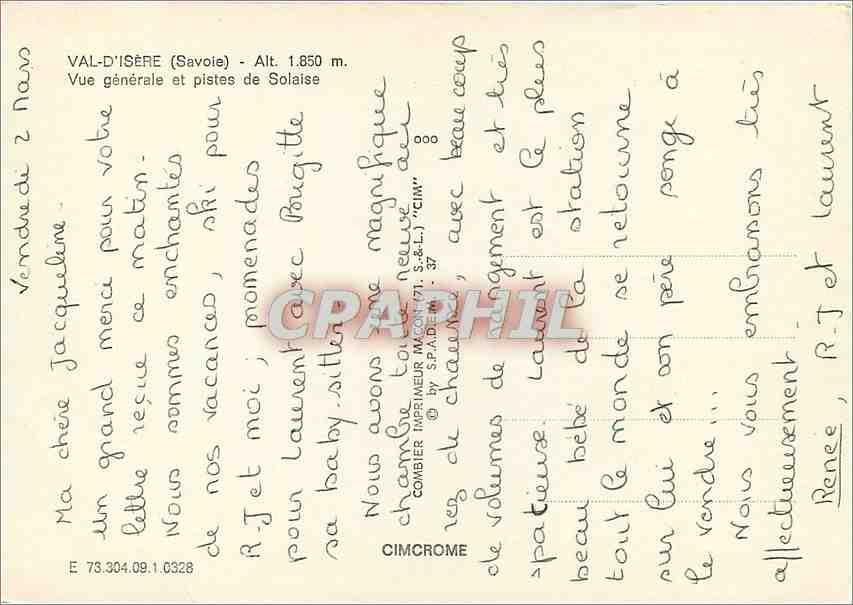 VAL-D'ISÈRE (Savoie) - Alt. 1.850 m.
Vue générale et pistes de Solaise
Vendredi 2 Mars
Ma chère Jacqueline.
un grand merci pour votre
lettre reçue ce matin.
Nous sommes enchantés
de nos vacances, ski pour
R-J et moi, promenades
pour Laurent avec Brigitte
sa baby-sitter.
Nous avons une magnifique
chambre toute neuve au
rez de chaussée, avec beaucoup
de volumes de rangement et très
spatieuse. Laurent est le plus
beau bébé de la station
tout le monde se retourne
sur lui et son père songe à
le vendre!!!
Nous vous embrassons très
affectueusement
Renée, R-J et Laurent
COMBIER IMPRIMEUR MACON (71, S.-&-L.) "CIM"
© by S.P.A.D.E.M. - 37
CPAPHIL
CIMCROME
E 73.304.09.1.0328